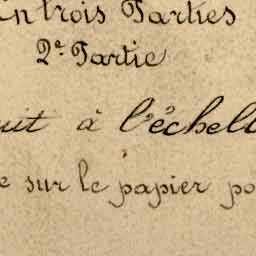 En trois Parties
2e Partie
uit à l'échell
e sur le papier po